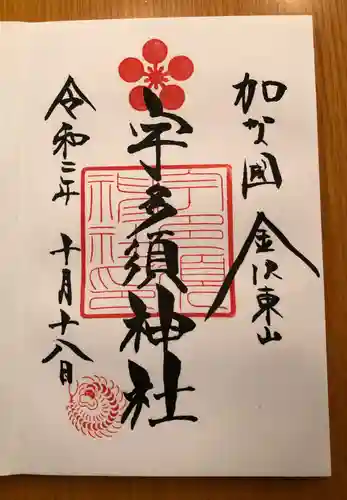 加賀國 金沢東山
宇多須神社
令和二年 十月十八日